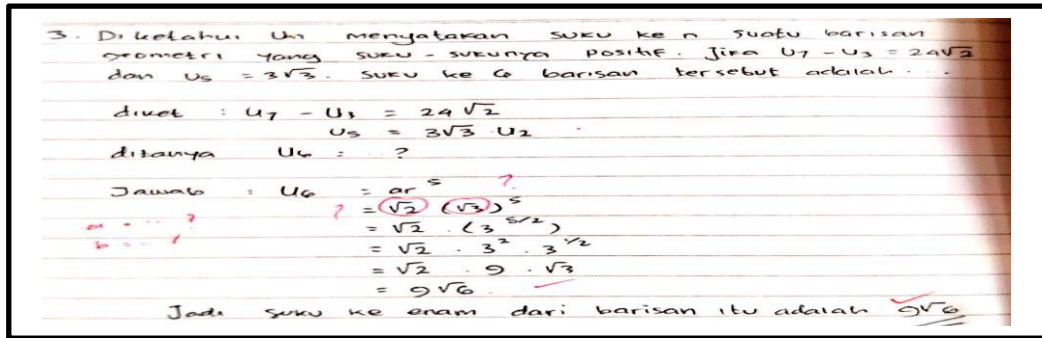 3. Diketahui Un menyatakan suku ke n suatu barisan
geometri yang suku - sukunya positif. Jika U7 - U3 = 24√2
dan U5 = 3√3. suku ke 6 barisan tersebut adalah ...
diket : U7 - U3 = 24√2
U5 = 3√3 · U2
ditanya U6 = ... ?
Jawab : U6 = ar^5 ?
? = √2 (√3)^5
a = ... ? = √2 . (3^5/2)
b = ... ? = √2 . 3^2 . 3^1/2
= √2 . 9 . √3
= 9√6
Jadi suku ke enam dari barisan itu adalah 9√6